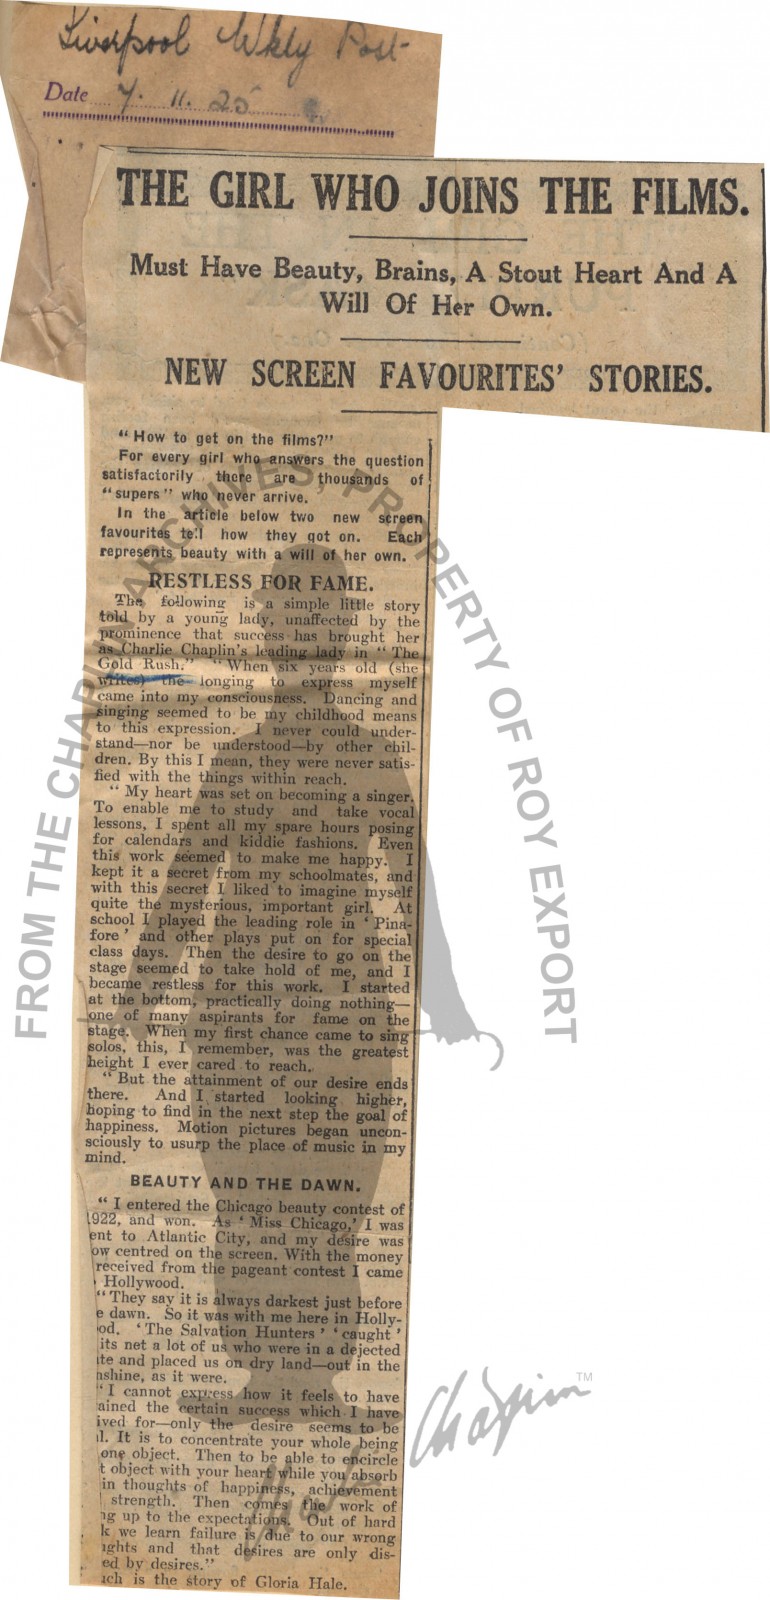 Liverpool Wkly Post
Date 7. 11. 25
THE GIRL WHO JOINS THE FILMS.
Must Have Beauty, Brains, A Stout Heart And A
Will Of Her Own.
NEW SCREEN FAVOURITES' STORIES.
"How to get on the films?"
For every girl who answers the question
satisfactorily there are thousands of
"supers" who never arrive.
In the article below two new screen
favourites tell how they got on. Each
represents beauty with a will of her own.
RESTLESS FOR FAME.
The following is a simple little story
told by a young lady, unaffected by the
prominence that success has brought her
as Charlie Chaplin's leading lady in "The
Gold Rush." "When six years old (she
writes) the longing to express myself
came into my consciousness. Dancing and
singing seemed to be my childhood means
to this expression. I never could under-
stand—nor be understood—by other chil-
dren. By this I mean, they were never satis-
fied with the things within reach.
"My heart was set on becoming a singer.
To enable me to study and take vocal
lessons, I spent all my spare hours posing
for calendars and kiddie fashions. Even
this work seemed to make me happy. I
kept it a secret from my schoolmates, and
with this secret I liked to imagine myself
quite the mysterious, important girl. At
school I played the leading role in 'Pina-
fore' and other plays put on for special
class days. Then the desire to go on the
stage seemed to take hold of me, and I
became restless for this work. I started
at the bottom, practically doing nothing—
one of many aspirants for fame on the
stage. When my first chance came to sing
solos, this, I remember, was the greatest
height I ever cared to reach.
"But the attainment of our desire ends
there. And I started looking higher,
hoping to find in the next step the goal of
happiness. Motion pictures began uncon-
sciously to usurp the place of music in my
mind.
BEAUTY AND THE DAWN.
"I entered the Chicago beauty contest of
1922, and won. As 'Miss Chicago,' I was
ent to Atlantic City, and my desire was
ow centred on the screen. With the money
received from the pageant contest I came
Hollywood.
"They say it is always darkest just before
e dawn. So it was with me here in Holly-
od. 'The Salvation Hunters' 'caught'
its net a lot of us who were in a dejected
te and placed us on dry land—out in the
nshine, as it were.
"I cannot express how it feels to have
ained the certain success which I have
ived for—only the desire seems to be
l. It is to concentrate your whole being
one object. Then to be able to encircle
t object with your heart while you absorb
in thoughts of happiness, achievement
strength. Then comes the work of
ng up to the expectations. Out of hard
k we learn failure is due to our wrong
ughts and that desires are only dis-
ed by desires."
uch is the story of Gloria Hale.
FROM THE CHAPLIN ARCHIVES, PROPERTY OF ROY EXPORT
Charles Chaplin TM